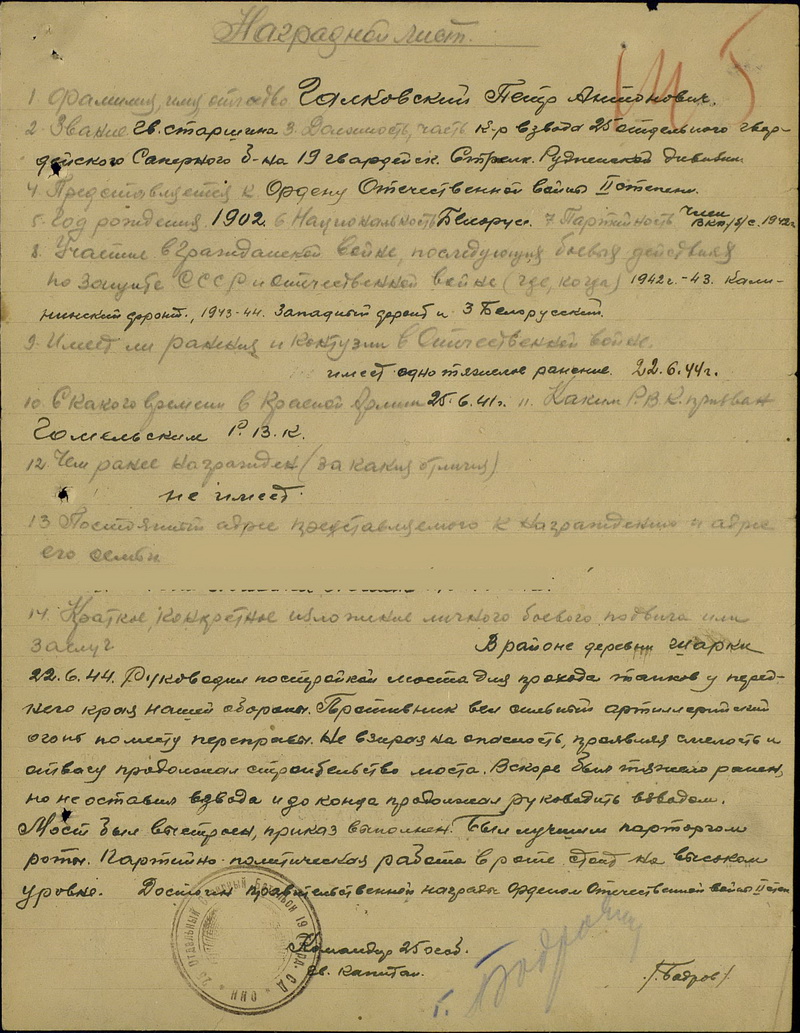 Наградной лист.
1 Фамилия, имя отчество Галковский Петр Антонович.
2. Звание Гв. старшина 3. Должность, часть к-р взвода 25 отдельного гвар-
дейского Саперного б-на 19 гвардейск. Стрелк. Рудненской дивизии
4 Представляется к Ордену Отечественной войны II степени.
5. Год рождения 1902. 6 Национальность Белорус. 7 Партийность Член ВКП/б/ с. 1942г
8. Участие в Гражданской войне, последующих боевых действиях
по защите СССР и Отечественной войне (где, когда) 1942г.-43. Кали-
нинский фронт, 1943-44. Западный фронт и 3 Белорусский.
9. Имеет ли ранения и контузии в Отечественной войне.
имеет одно тяжелое ранение. 22.6.44г.
10. С какого времени в Красной Армии 25.6.41г. 11. Каким Р.В.К. призван
Гомельским Р.В.К.
12. Чем ранее награжден (за какие отличия)
не имеет.
13 Постоянный адрес представляемого к награждению и адрес
его семьи
14. Краткое, конкретное изложение личного боевого подвига или
заслуг В районе деревни Шарки
22.6.44. Руководил постройкой моста для прохода танков у перед-
него края нашей обороны. Противник вел сильный артиллерийский
огонь по месту переправы. Не взирая на опасность, проявляя смелость и
отвагу продолжал строительство моста. Вскоре был тяжело ранен,
но не оставил взвода и до конца продолжал руководить взводом.
Мост был выстроен, приказ выполнен. Был лучшим парторгом
роты. Партийно-политическая работа в роте стоит на высоком
уровне. Достоин правительственной награды Орденом Отечественной войны II степ
Командир 25 осаб.
Гв. капитан. /Бодров/